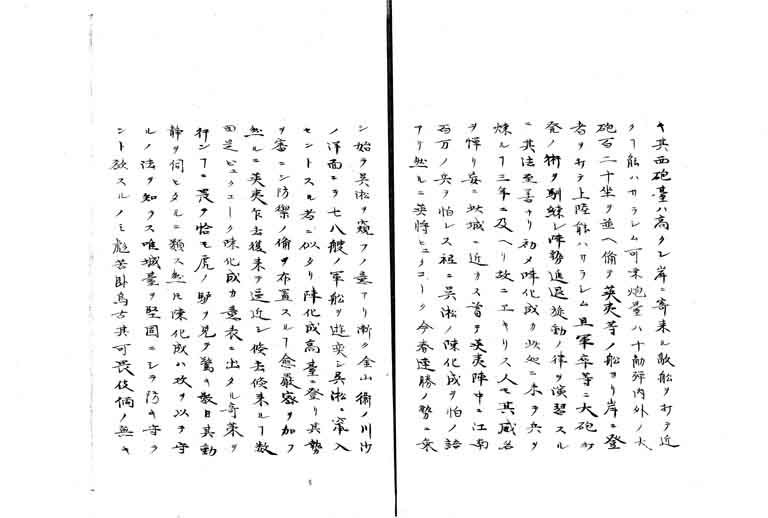 キ其西砲臺ハ高クシ岸ニ寄来ル敵船ヲ打テ近
クヿ能ハサラシム可末炮臺ハ十斯弾内外ノ大
砲百二十坐ヲ並ヘ備ヲ英夷等ノ船ヨリ岸ニ登
者ヲ打テ上陸能ハサラシム且軍卒等ニ大砲打
発ノ術ヲ馴練シ陳勢進退旋動ノ律ヲ演習スル
ニ其法至善ナリ初メ陳化成カ此処ニ来ヲ兵ヲ
煉ルヿ三年ニ及ヘリ故ニエキリス人モ其威名
ヲ憚リ妄ニ此城ニ近カス曽テ英夷陣中ニ江南
百万ノ兵ヲ怕レス袛ニ吴淞ノ陳化成ヲ怕ノ語
アリ然ルニ英将ヒユクコーク今春連勝ノ勢ニ乗
シ始テ吴淞ヲ窺フノ意アリ漸ク金山衛ノ川沙
ノ洋面ニテ七八艘ノ軍船ヲ遊奕シ吴淞ニ窜入
セントスル者ニ似タリ陳化成高臺ニ登リ其勢
ヲ審ニシ防禦ノ備ヲ布置スルヿ愈嚴密ヲ加フ
然ルニ英夷乍去復来テ逼近シ倏去倏来ルヿ数
回是ヒユクコーク陳化成カ意表ニ出タル奇策ヲ
行ンヿニ畏ヲ恰モ虎ノ驢ヲ見テ驚キ数日其動
静ヲ伺ヒタルニ類ス然ルニ陳化成ハ攻ヲ以テ守
ルノ法ヲ知ラス唯城臺ヲ堅固ニシテ防キ守ラ
ント欲スルノミ彪苦臥烏古其可畏伎倆ノ無キ